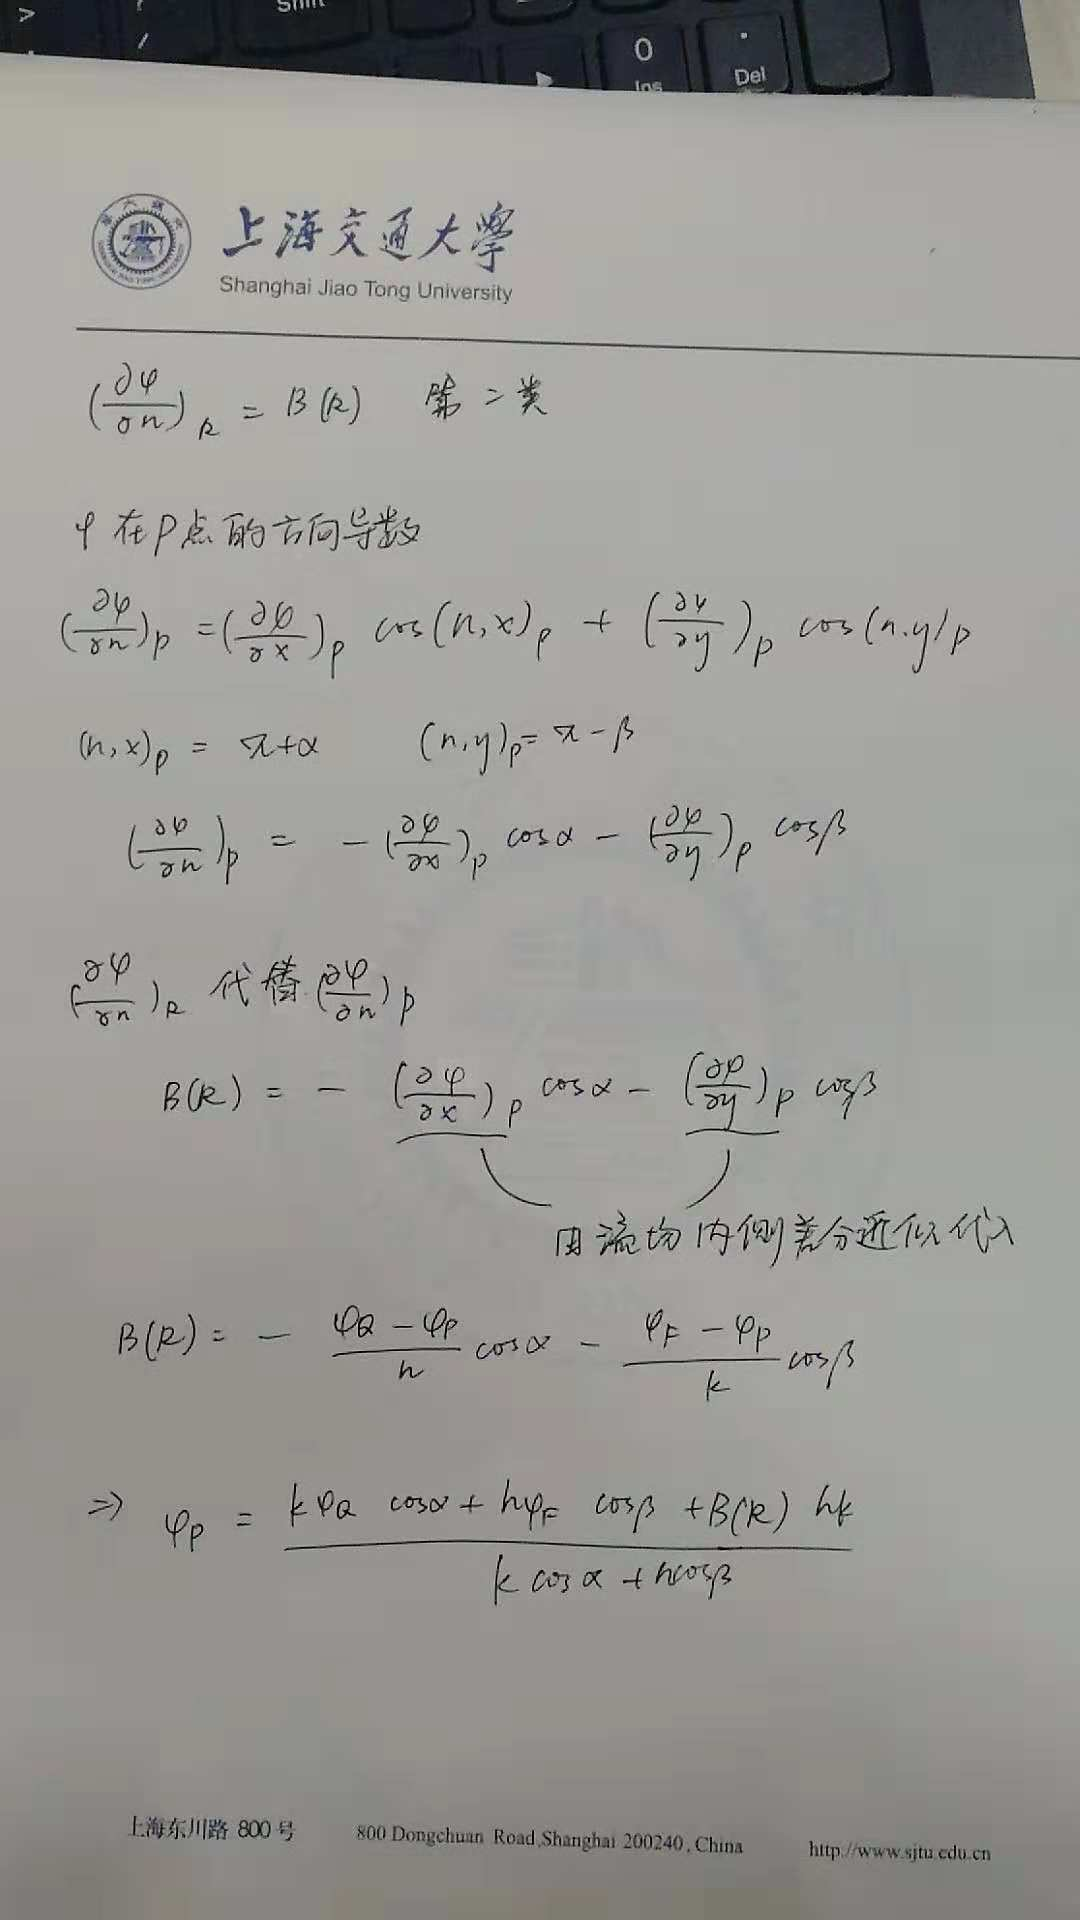 Shift
0
Ins
.
Del
上海交通大学
Shanghai Jiao Tong University
(∂φ/∂n)_R = B(R) 第二类
φ在P点的方向导数
(∂φ/∂n)_P = (∂φ/∂x)_P cos(n,x)_P + (∂φ/∂y)_P cos(n.y)_P
(n,x)_P = π+α (n,y)_P = π-β
(∂φ/∂n)_P = -(∂φ/∂x)_P cosα - (∂φ/∂y)_P cosβ
(∂φ/∂n)_R 代替 (∂φ/∂n)_P
B(R) = - (∂φ/∂x)_P cosα - (∂φ/∂y)_P cosβ
用流场内侧差分近似代入
B(R) = - (φ_Q - φ_P)/h cosα - (φ_F - φ_P)/k cosβ
⇒ φ_P = (kφ_Q cosα + hφ_F cosβ + B(R) hk)/(k cosα + hcosβ)
上海东川路 800号 800 Dongchuan Road,Shanghai 200240, China http://www.sjtu.edu.cn